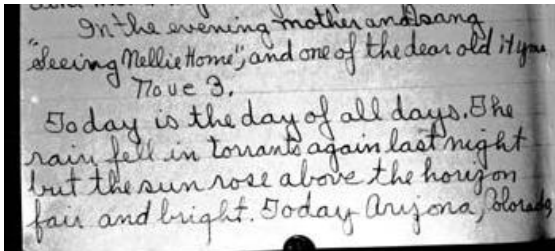 In the evening mother and I sang
"Seeing Nellie Home", and one of the dear old Hymns
Nove 3.
Today is the day of all days. The
rain fell in torrants again last night
but the sun rose above the horizon
fair and bright. Today Arizona, Colorado,